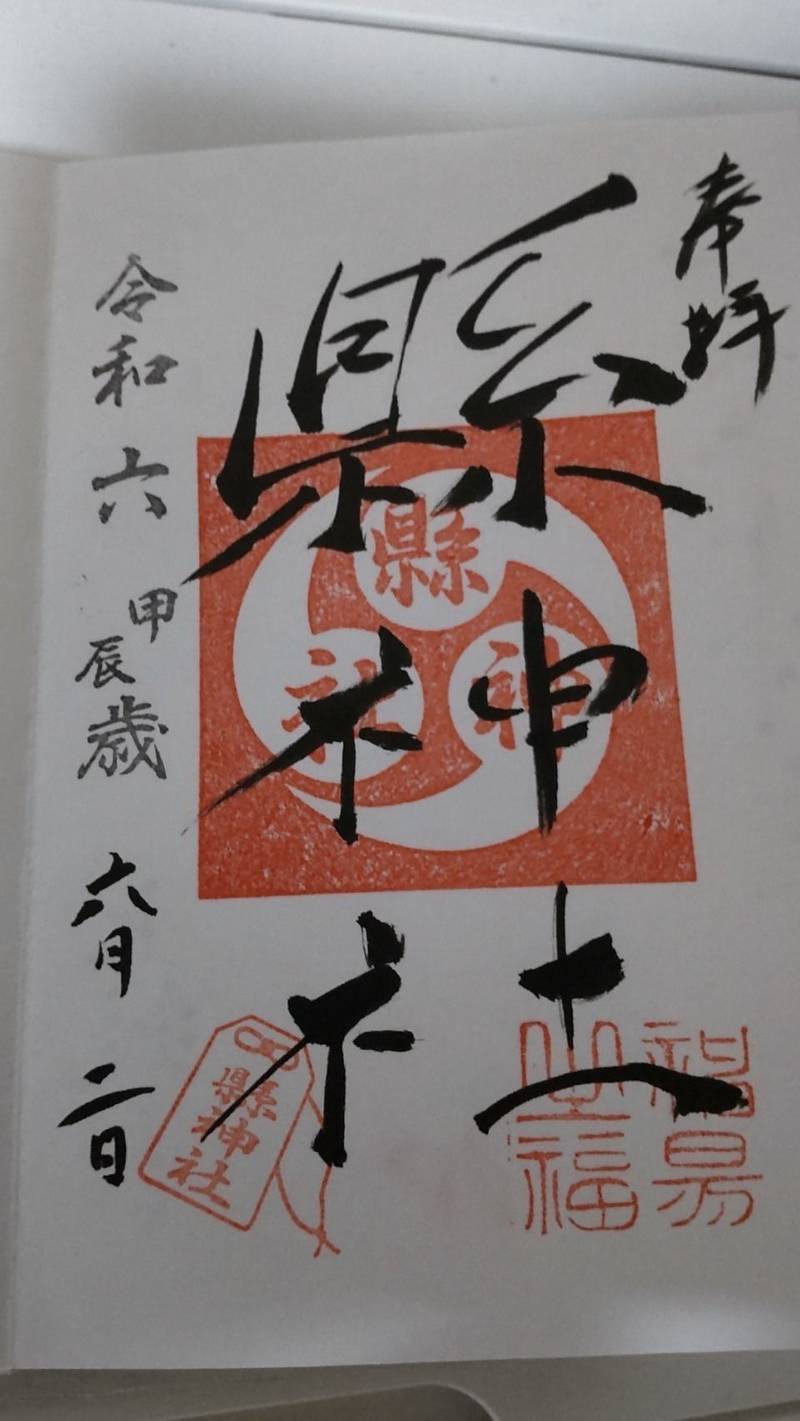 奉拝
縣神社
縣
神
社
縣神社
令和六甲辰歳六月二日